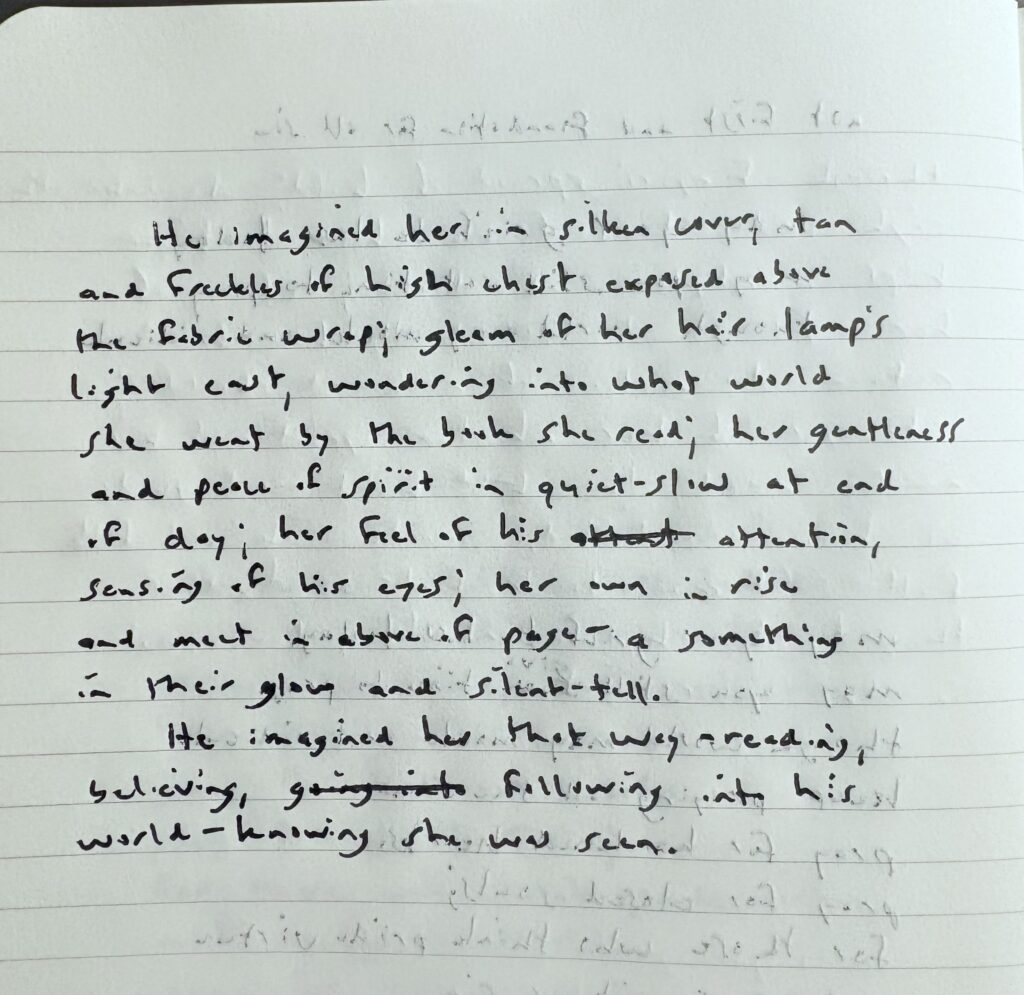 He imagined her in silken cover, tan
and freckles of high chest exposed above
the fabric wrap; gleam of her hair lamp's
light cast, wondering into what world
she went by the book she read; her gentleness
and peace of spirit in quiet-slow at end
of day; her feel of his attention,
sensing of his eyes; her own in rise
and meet in above of page – a something
in their glow and silent-tell.
He imagined her that way – reading,
believing, going into following into his
world – knowing she was seen.